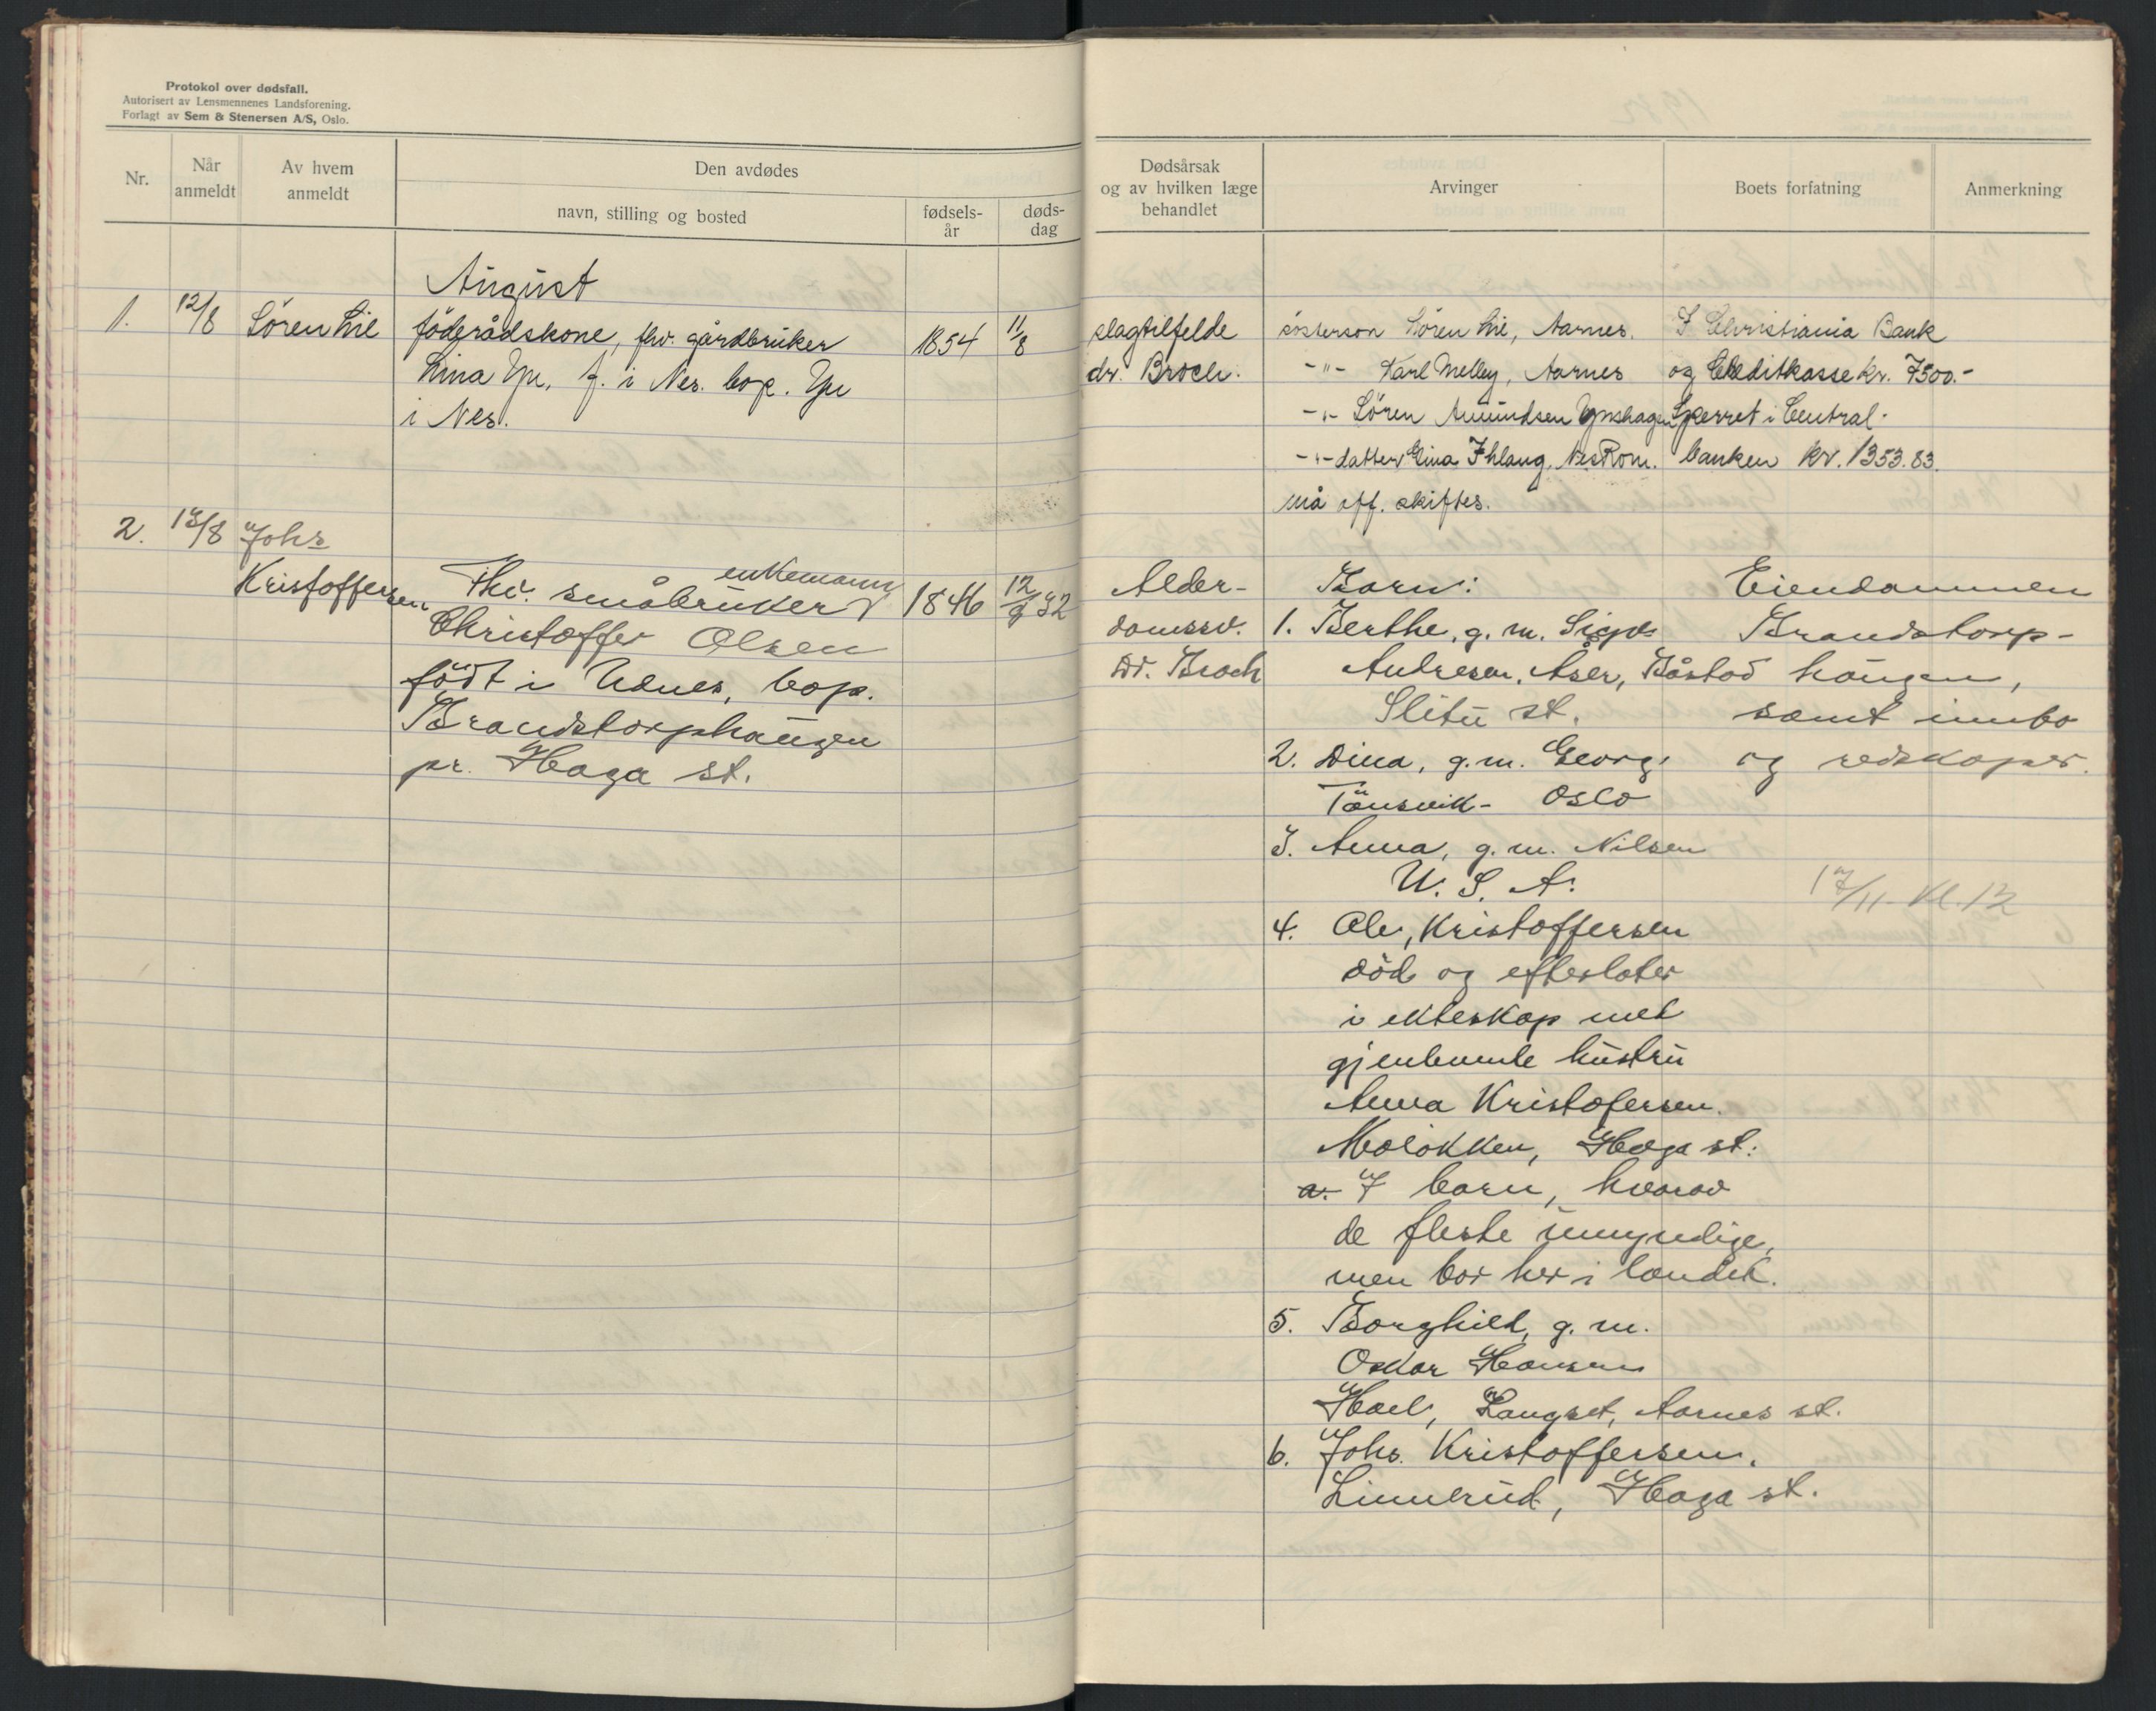 Protokol over dødsfall.
Autorisert av Lensmennenes Landsforening.
Forlagt av Sem & Stenersen A/S, Oslo.
Nr.
Når anmeldt
Av hvem anmeldt
Den avdødes
navn, stilling og bosted
fødsels-
år
døds-
dag
August
1. 12/8 Sören Lie
föderådskone, fhv. gårdbruker
Lina Ype, f. i Nes. bop. Ype
i Nes.
1854
11/8
2. 13/8 Johs
Kristoffersen
enkemann
Fhv. småbruker
Christoffer Olsen
födt i Udnes, bop.
Brandstorphaugen
pr. Haga st.
1846
12/8 32
Dødsårsak
og av hvilken læge
behandlet
Arvinger
Boets forfatning
Anmerkning
slagtilfelde
dr. Broch.
sösterson Sören Lie, Aarnes.
-"- Karl Melby, Aarnes
-"- Sören Amundsen Ypshagen
-"- datter Lina Ihlang, Nes Rom.
må off. skiftes.
I Christiania Bank
og Creditkasse kr. 7500.-
Sperret i Central-
banken kr. 1353.83.
Alder-
domssv.
Dr. Broch
Barn:
1. Berthe, g. m. Sigv.
Andresen, Aser, Båstad
Slitu st.
2. Dina, g. m. Georg
Tönsvik - Oslo
3. Anna, g. m. Nilsen
U. S. A.
4. Ole, Kristoffersen
död og efterlater
i ekteskap med
gjenlevende hustru
Anna Kristofersen.
Molökken, Haga st.
a. 7 barn, hvorav
de fleste umyndige,
men bor her i landet.
5. Borghild, g. m.
Oskar Hansen
Hael, Langset, Aarnes st.
6. Johs. Kristoffersen.
Linnerud, Haga st.
Eiendommen
Brandstorp-
haugen,
samt innbo
og redskaper.
17/11 - kl. 12